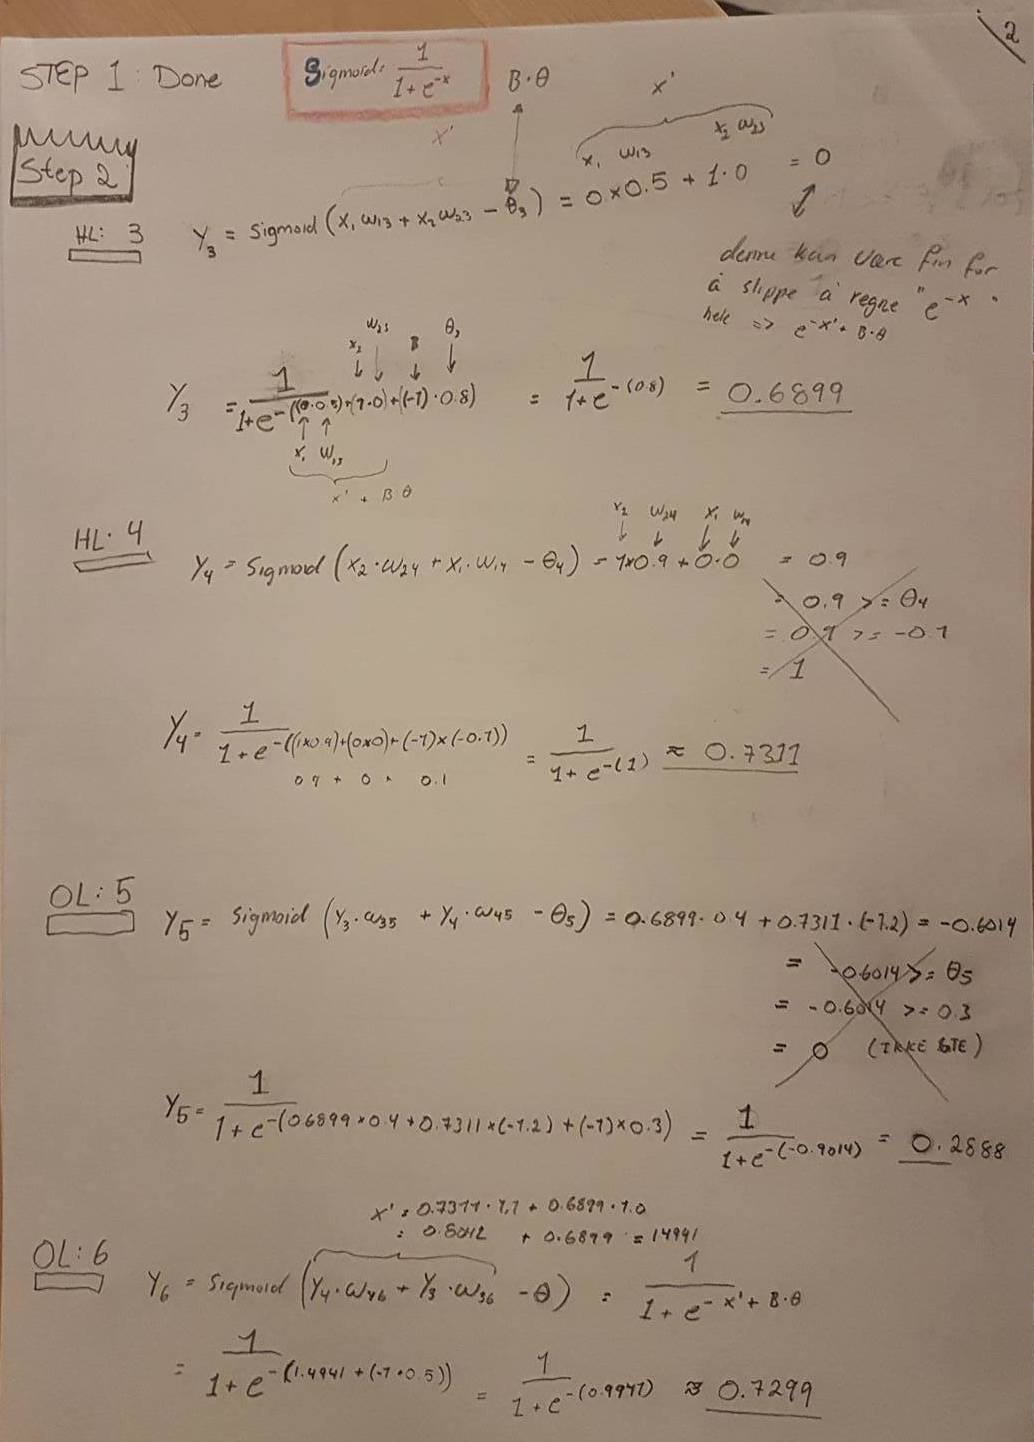 2
STEP 1: Done
Sigmoid: 1 / (1 + e^-x)
B·θ
x'
x'
x₁ w₁₃ x₂ w₂₃
Step 2
HL: 3
Y₃ = Sigmoid (x₁ w₁₃ + x₂ w₂₃ - θ₃) = 0 × 0.5 + 1·0 = 0
denne kan være fin for
å slippe å regne "e^-x"
hele => e^-x' + B·θ
x₂ w₂₃ B θ₃
Y₃ = 1 / (1 + e^-((0·0.5)+(1·0)+(-1)·0.8)) = 1 / (1 + e^-(0.8)) = 0.6899
x₁ w₁₃
x' + B θ
HL: 4
x₂ w₂₄ x₁ w₁₄
Y₄ = Sigmoid (x₂·w₂₄ + x₁·w₁₄ - θ₄) = 1×0.9 + 0·0 = 0.9
= 0.9 >= θ₄
= 0.9 >= -0.1
= 1
Y₄ = 1 / (1 + e^-((1×0.9)+(0×0)+(-1)×(-0.1))) = 1 / (1 + e^-(1)) ≈ 0.7311
0.9 + 0 + 0.1
OL: 5
Y₅ = Sigmoid (Y₃·w₃₅ + Y₄·w₄₅ - θ₅) = 0.6899·0.4 + 0.7311·(-1.2) = -0.6014
= -0.6014 >= θ₅
= -0.6014 >= 0.3
= 0 (IKKE GTE)
Y₅ = 1 / (1 + e^-(0.6899×0.4+0.7311×(-1.2)+(-1)×0.3)) = 1 / (1 + e^-(-0.9014)) = 0.2888
x' = 0.7311·1,1 + 0.6899·1.0
= 0.8042 + 0.6899 = 1.4941
OL: 6
Y₆ = Sigmoid (Y₄·w₄₆ + Y₃·w₃₆ - θ) = 1 / (1 + e^-x' + B·θ)
= 1 / (1 + e^-(1.4941 + (-1·0.5))) = 1 / (1 + e^-(0.9941)) ≈ 0.7299